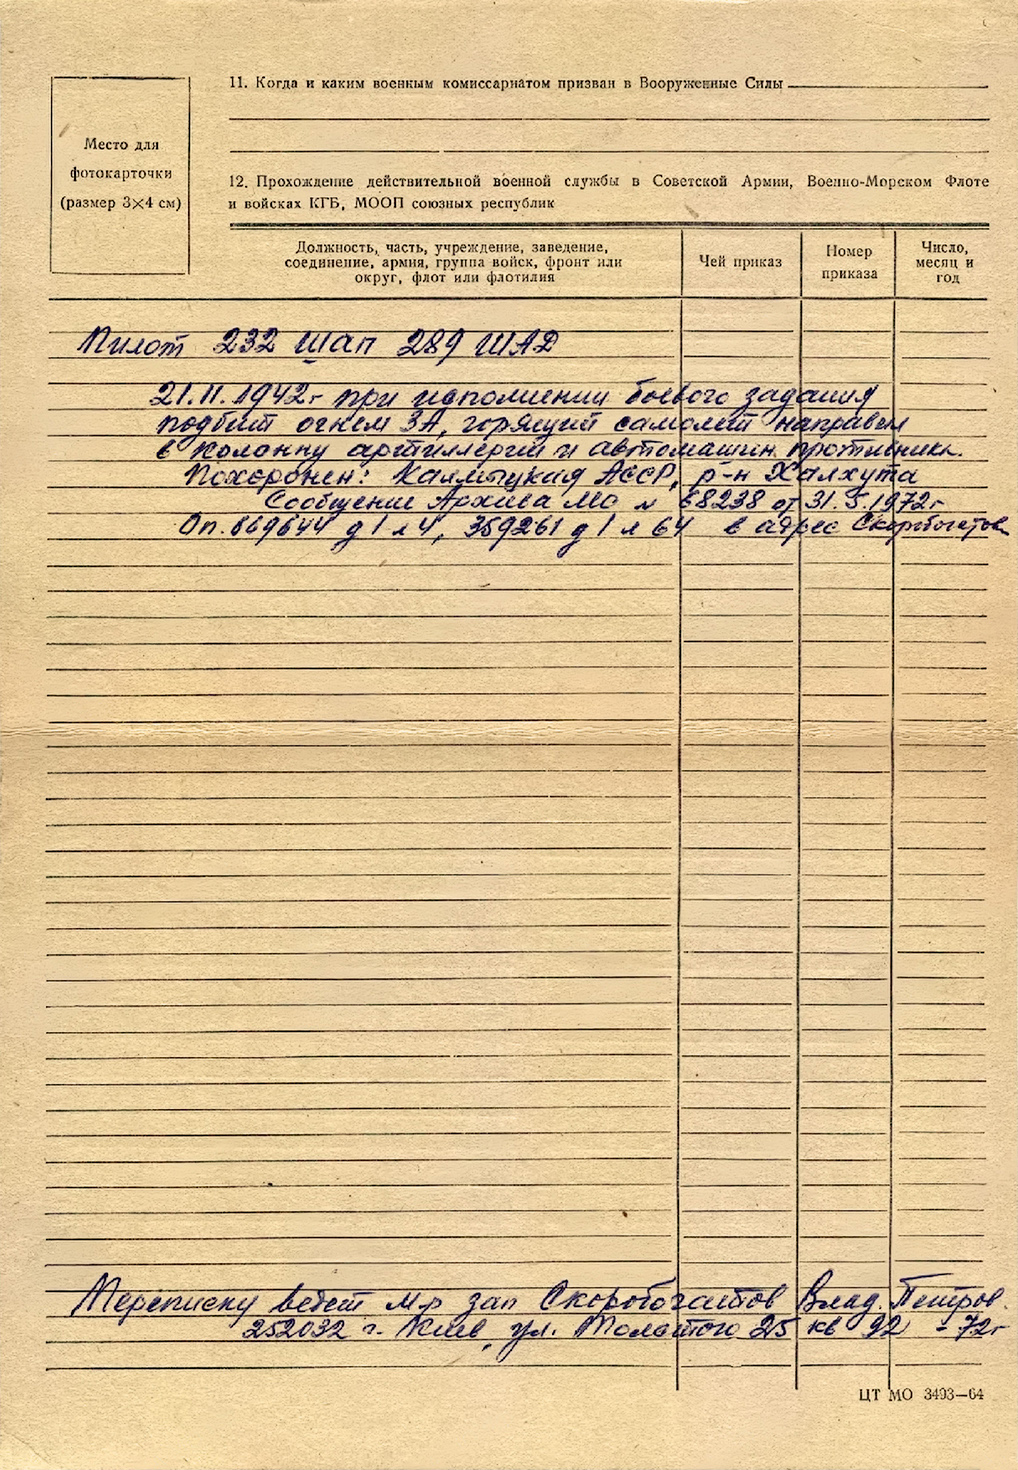 11. Когда и каким военным комиссариатом призван в Вооруженные Силы
Место для
фотокарточки
(размер 3×4 см)
12. Прохождение действительной военной службы в Советской Армии, Военно-Морском Флоте
и войсках КГБ, МООП союзных республик
Должность, часть, учреждение, заведение,
соединение, армия, группа войск, фронт или
округ, флот или флотилия
Чей приказ
Номер
приказа
Число,
месяц и
год
Пилот 232 шап 289 ШАД
21.11.1942г при исполнении боевого задания
подбит огнем ЗА, горящий самолет направил
в колонну артиллерии и автомашин противника.
Похоронен: Калмыцкая АССР, р-н Халхута
Сообщение Архива МО № 68238 от 31.5.1972г
Оп. 869644 д 1 л 4, 359261 д 1 л 64 в адрес Скоробогатов
Переписку ведет м-р зап Скоробогатов Влад. Петров.
252032 г. Киев, ул. Толстого 25 кв 92 - 72г
ЦТ МО 3493—64